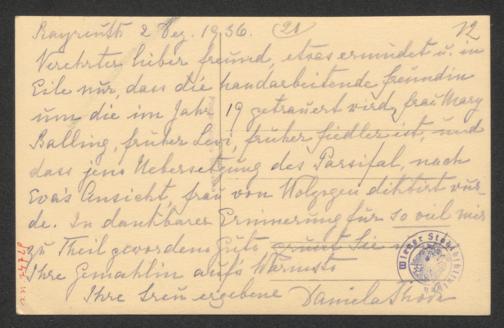 Bayreuth 2 Dez. 1936. (21) 12
Verehrter lieber Freund, etwas ermüdet u. in
Eile nur, dass die handarbeitende Freundin
um die im Jahr 19 getrauert wird, Frau Mary
Balling, früher Levi, früher Fiedler ist, und
dass jene Uebersetzung des Parsifal, nach
Eva's Ansicht, Frau von Wolzogen diktirt wur-
de. In dankbarer Erinnerung für so viel mir
zu Theil gewordene Güte, grüsst Sie u.
Ihre Gemahlin auf's Wärmste
Ihre treu ergebene Daniela Thode
Wiener